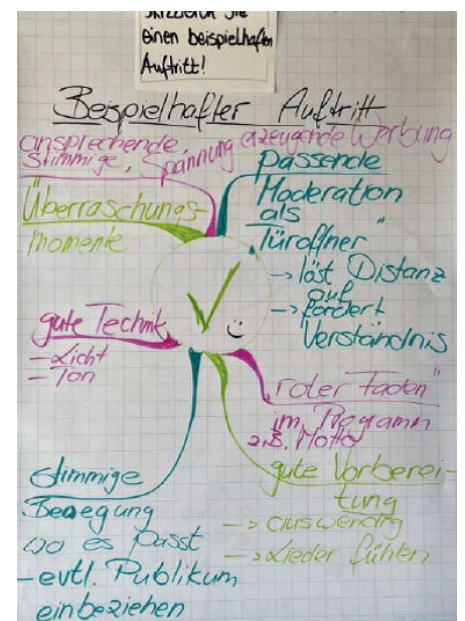 einen beispielhaften
Auftritt!
Beispielhafter Auftritt
ansprechende,
stimmige, Spannung erzeugende Werbung
Überraschungs-
momente
passende
Moderation
als
"Türöffner"
-> löst Distanz
auf
-> fördert
Verständnis
gute Technik
- Licht
- Ton
"roter Faden"
im Programm
z.B. Motto
gute Vorberei-
tung
-> auswendig
-> Lieder fühlen
stimmige
Bewegung
wo es passt
- evtl. Publikum
einbeziehen